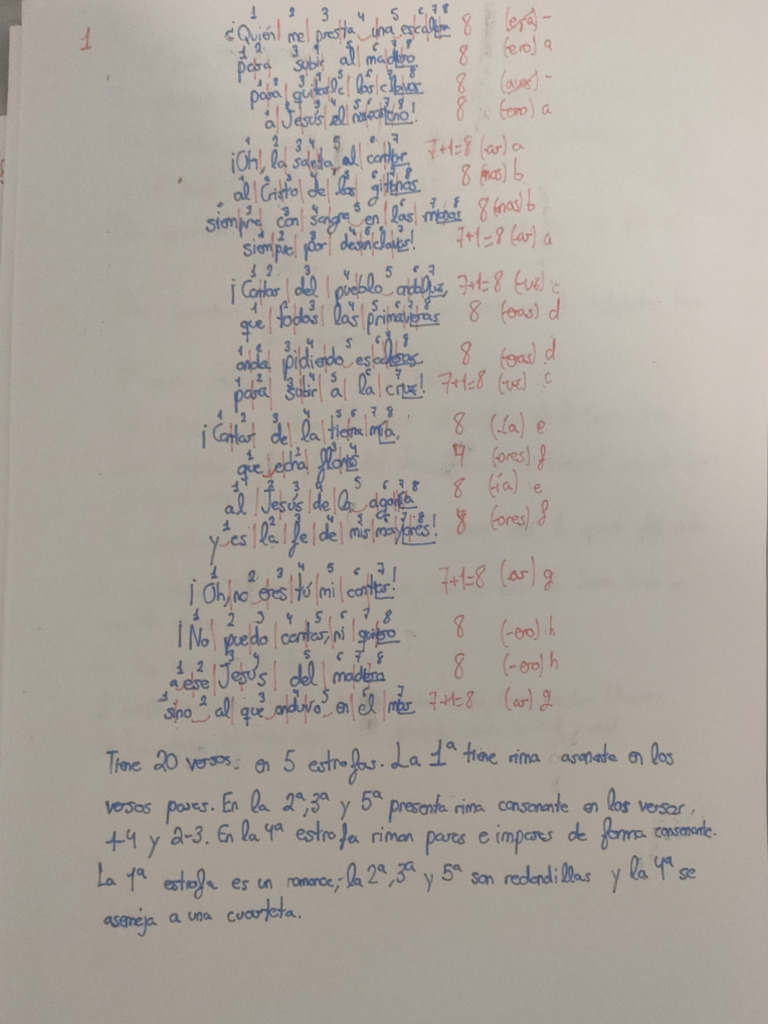 1
¿Quién me presta una escalera 8 (era) -
para subir al madero 8 (ero) a
para quitarle los clavos 8 (avos) -
a Jesús el nazareno! 8 (eno) a
¡Oh, la saeta al cantar 7+1=8 (ar) a
al Cristo de los gitanos 8 (nos) b
siempre con sangre en las manos 8 (nos) b
siempre por desenclavar! 7+1=8 (ar) a
¡Cantar del pueblo andaluz, 7+1=8 (uz) c
que todas las primaveras 8 (eras) d
anda pidiendo escaleras 8 (eras) d
para subir a la cruz! 7+1=8 (uz) c
¡Cantar de la tierra mía, 8 (-ía) e
que echa flores 4 (ores) f
al Jesús de la agonía 8 (-ía) e
y es la fe de mis mayores! 8 (ores) f
¡Oh, no eres tú mi cantar! 7+1=8 (ar) g
¡No puedo cantar, ni quiero 8 (-ero) h
a ese Jesús del madero 8 (-ero) h
sino al que anduvo en el mar 7+1=8 (ar) g
Tiene 20 versos, en 5 estrofas. La 1ª tiene rima asonante en los
versos pares. En la 2ª, 3ª y 5ª presenta rima consonante en los versos
1-4 y 2-3. En la 4ª estrofa riman pares e impares de forma consonante.
La 1ª estrofa es un romance; la 2ª, 3ª y 5ª son redondillas y la 4ª se
asemeja a una cuarteta.